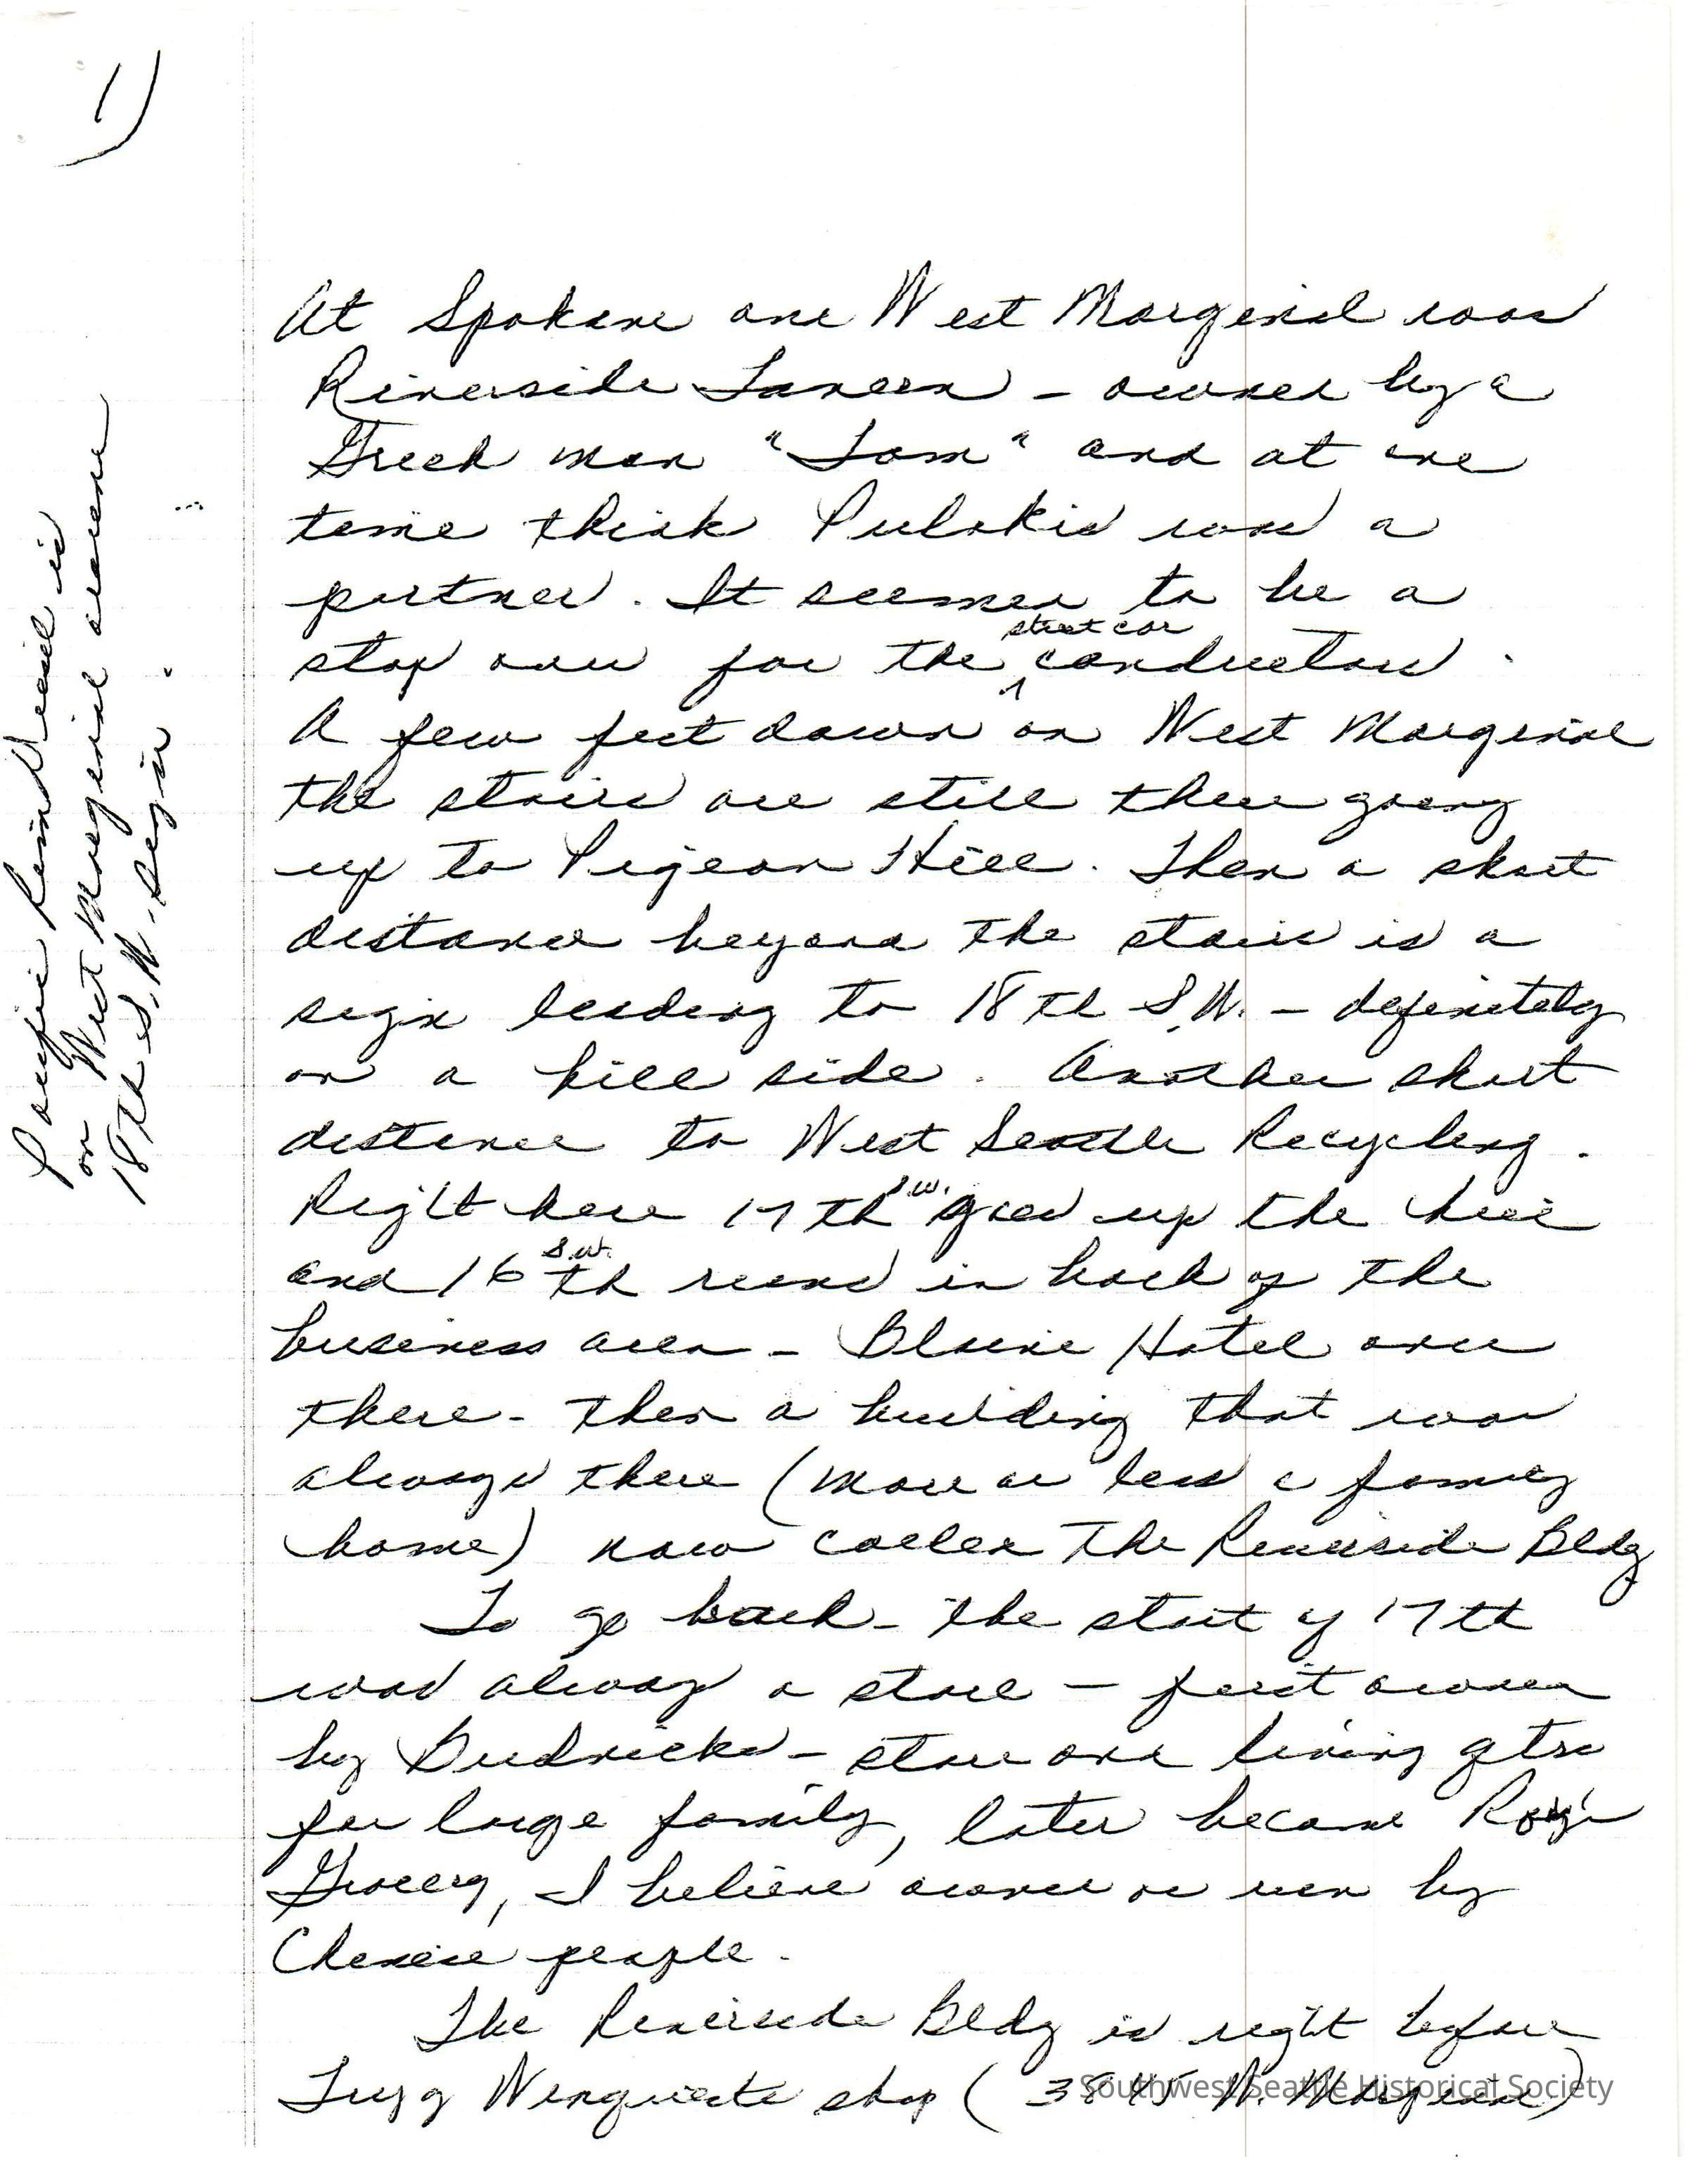 1)
At Spokane and West Marginal was
Riverside Tavern - owned by a
Greek man "Tom" and at one
time think Pulakis was a
partner. It seemed to be a
stop over for the street car conductors.
A few feet down on West Marginal
the stairs are still there going
up to Pigeon Hill. Then a short
distance beyond the stairs is a
sign leading to 18th S.W. - definitely
on a hill side. Another short
distance to West Seattle Recycling.
Right here 17th S.W. goes up the hill
and 16th S.W. runs in back of the
business area - Blaine Hotel once
there - then a building that was
always there (more or less a family
home) now called The Riverside Bldg
To go back - the start of 17th
was always a store - first owned
by Budnicks - store and living qtrs
for large family, later became Roy's
Grocery, I believe owned or run by
Chinese people.
The Riverside Bldg is right before
Winquists shop ( W. Marginal)
Pacific Rim is
on West Marginal avenue
18th S.W. sign.
Southwest Seattle Historical Society